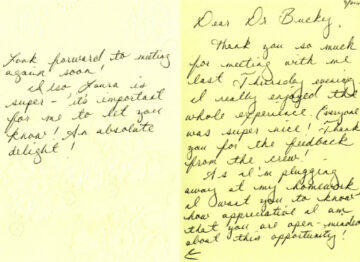 Dear Dr Bucky,
Thank you so much
for meeting with me
last Thursday evening.
I really enjoyed the
whole experience. Everyone
was super nice! Thank
you for the feedback
from the crew!
As I'm plugging
away at my homework
I want you to know
how appreciative I am
that you are open-minded
about this opportunity!
Look forward to meeting
again soon!
Also Laura is
super - it's important
for me to let you
know! An absolute
delight!